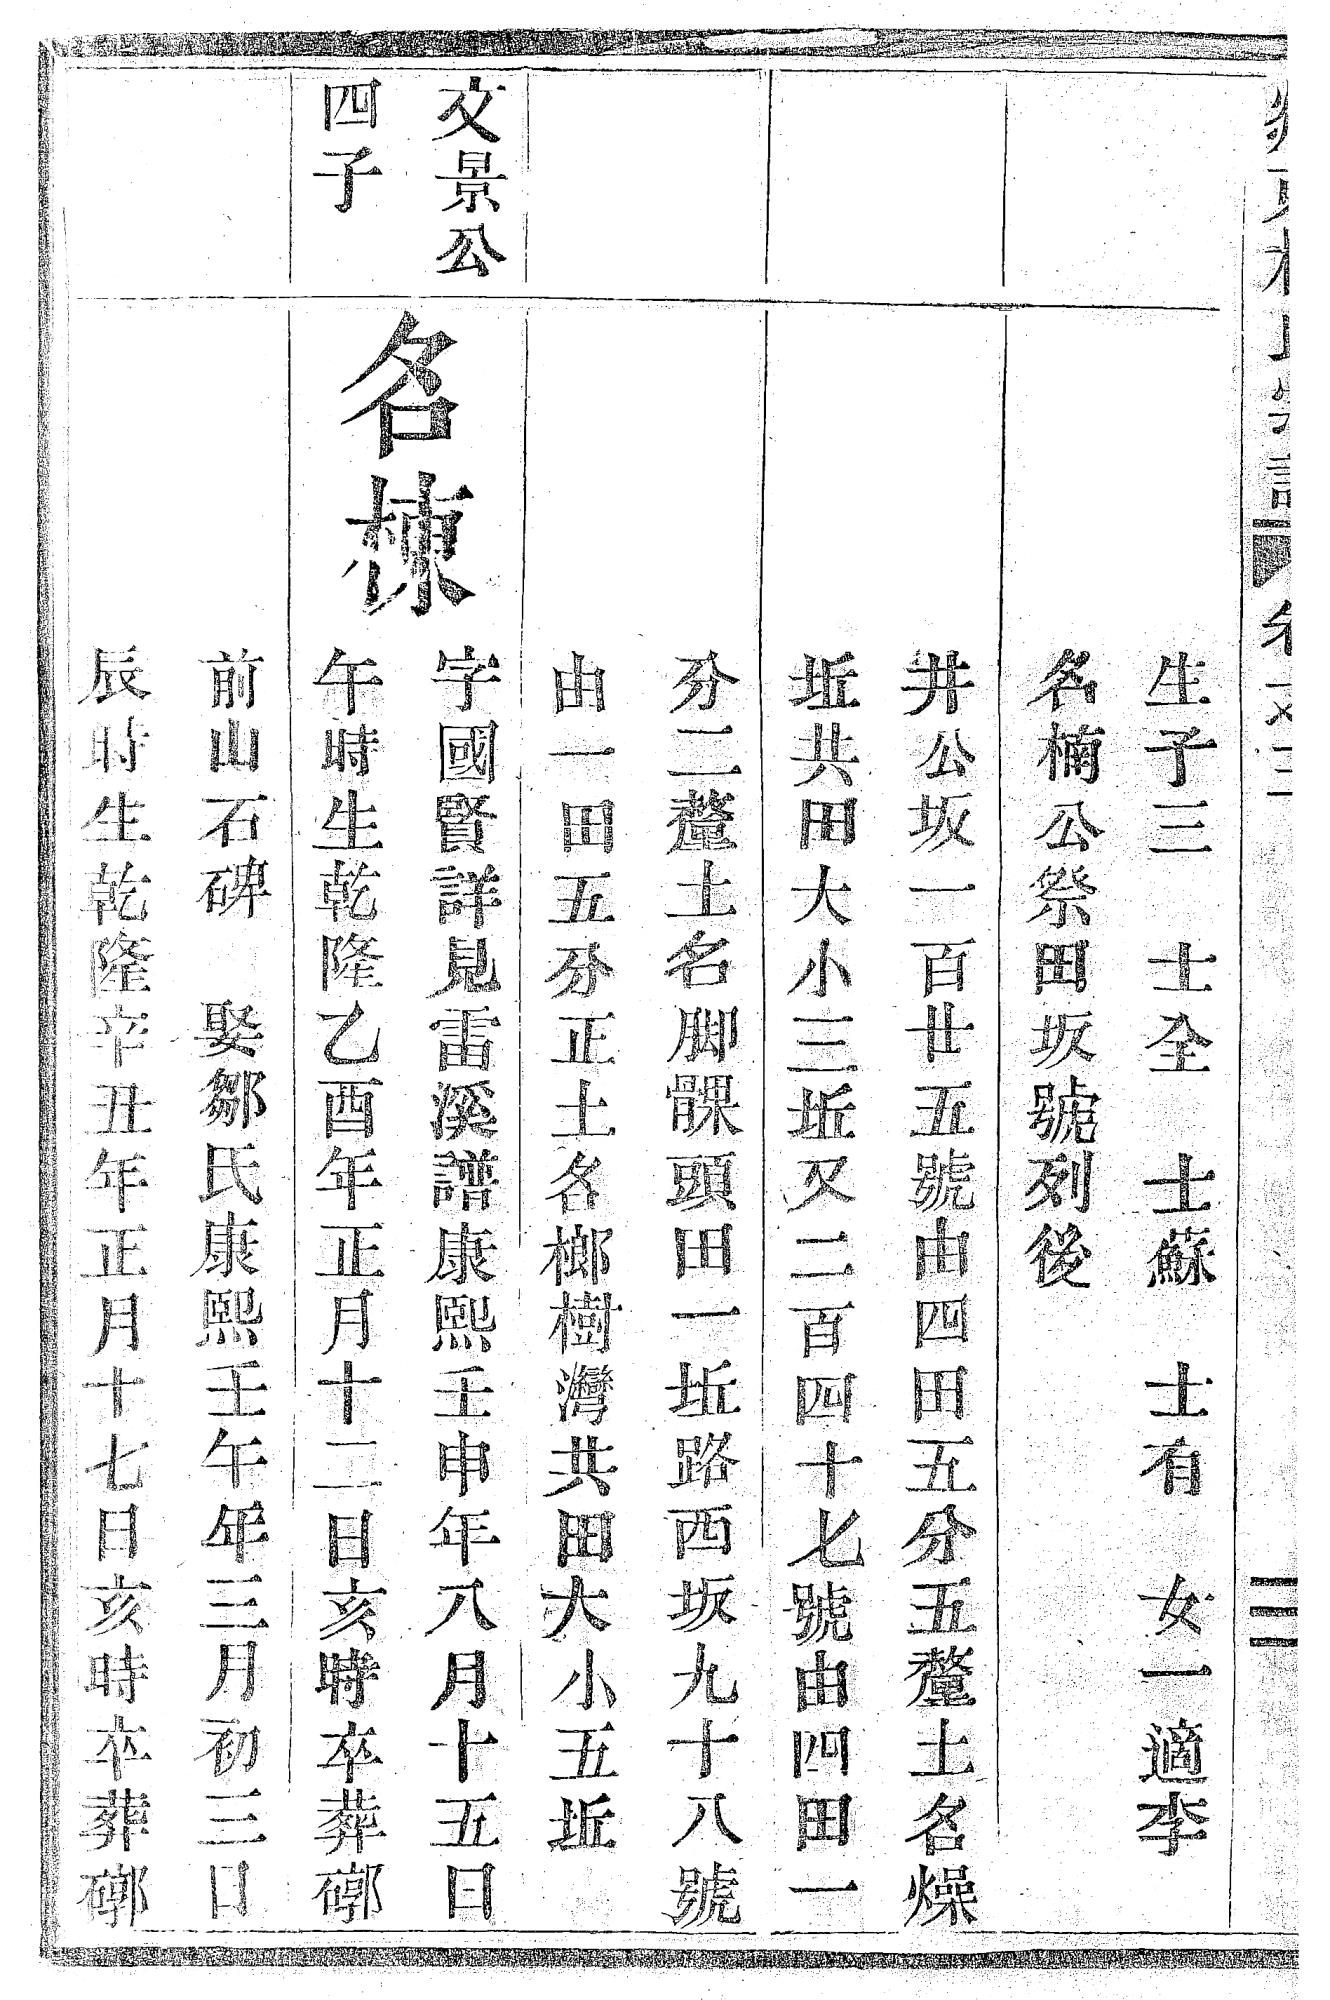 生子三 士全 士蘇 士有 女一適李
名楠公祭田坂號列後
井公坂一百廿五號由四田五分五釐土名燥
坵共田大小三坵又二百四十七號由四田一
分二釐土名脚髁頭田一坵路西坂九十八號
由一田五分正土名榔樹灣共田大小五坵
文景公
四子
名棟
字國賢詳見雷溪譜康熙壬申年八月十五日
午時生乾隆乙酉年正月十二日亥時卒葬磱
前山石碑 娶鄒氏康熙壬午年三月初三日
辰時生乾隆辛丑年正月十七日亥時卒葬磱